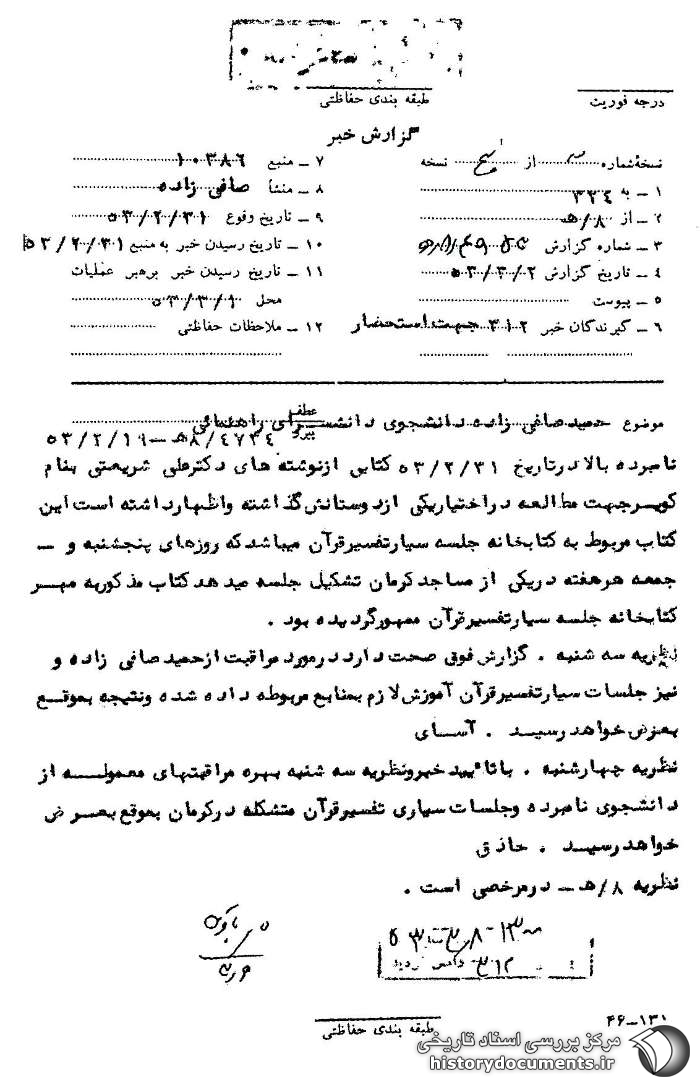 طبقه بندی حفاظتی
درجه فوریت
گزارش خبر
نسخهٔ شماره از نسخه
۱ – به ۳۳۴
۲ – از ۸/هـ
۳ – شماره گزارش
۴ – تاریخ گزارش ۵۳/۳/۲
۵ – پیوست
۶ – گیرندگان خبر ۳۱۲ جهت استحضار
۷ – منبع ۱۰۳۸۶
۸ – منشأ صافی زاده
۹ – تاریخ وقوع ۵۳/۲/۳۱
۱۰ – تاریخ رسیدن خبر به منبع ۵۳/۲/۳۱
۱۱ – تاریخ رسیدن خبر برهبر عملیات
محل ۵۳/۳/۱
۱۲ – ملاحظات حفاظتی
موضوع حمید صافی زاده دانشجوی دانشسرای راهنمائی
عطف
پیرو ۸/۴۷۳۴هـ – ۵۳/۲/۱۹
نامبرده بالا در تاریخ ۵۳/۲/۳۱ کتابی از نوشته های دکتر علی شریعتی بنام
کویر جهت مطالعه در اختیار یکی از دوستانش گذاشته و اظهار داشته است این
کتاب مربوط به کتابخانه جلسه سیار تفسیر قرآن میباشد که روزهای پنجشنبه و –
جمعه هر هفته در یکی از مساجد کرمان تشکیل جلسه میدهد کتاب مذکور به مهر
کتابخانه جلسه سیار تفسیر قرآن ممهور گردیده بود .
نظریه سه شنبه . گزارش فوق صحت دارد در مورد مراقبت از حمید صافی زاده و
نیز جلسات سیار تفسیر قرآن آموزش لازم بمنابع مربوطه داده شده و نتیجه بموقع
بعرض خواهد رسید . آسای
نظریه چهارشنبه . با تائید خبر و نظریه سه شنبه بهره مراقبتهای معموله از
دانشجوی نامبرده و جلسات سیاری تفسیر قرآن متشکله در کرمان بموقع بعرض
خواهد رسید . حاذق
نظریه ۸/هـ – در مرخصی است .
طبقه بندی حفاظتی
۴۶–۱۳۱
مرکز بررسی اسناد تاریخی
historydocuments.ir